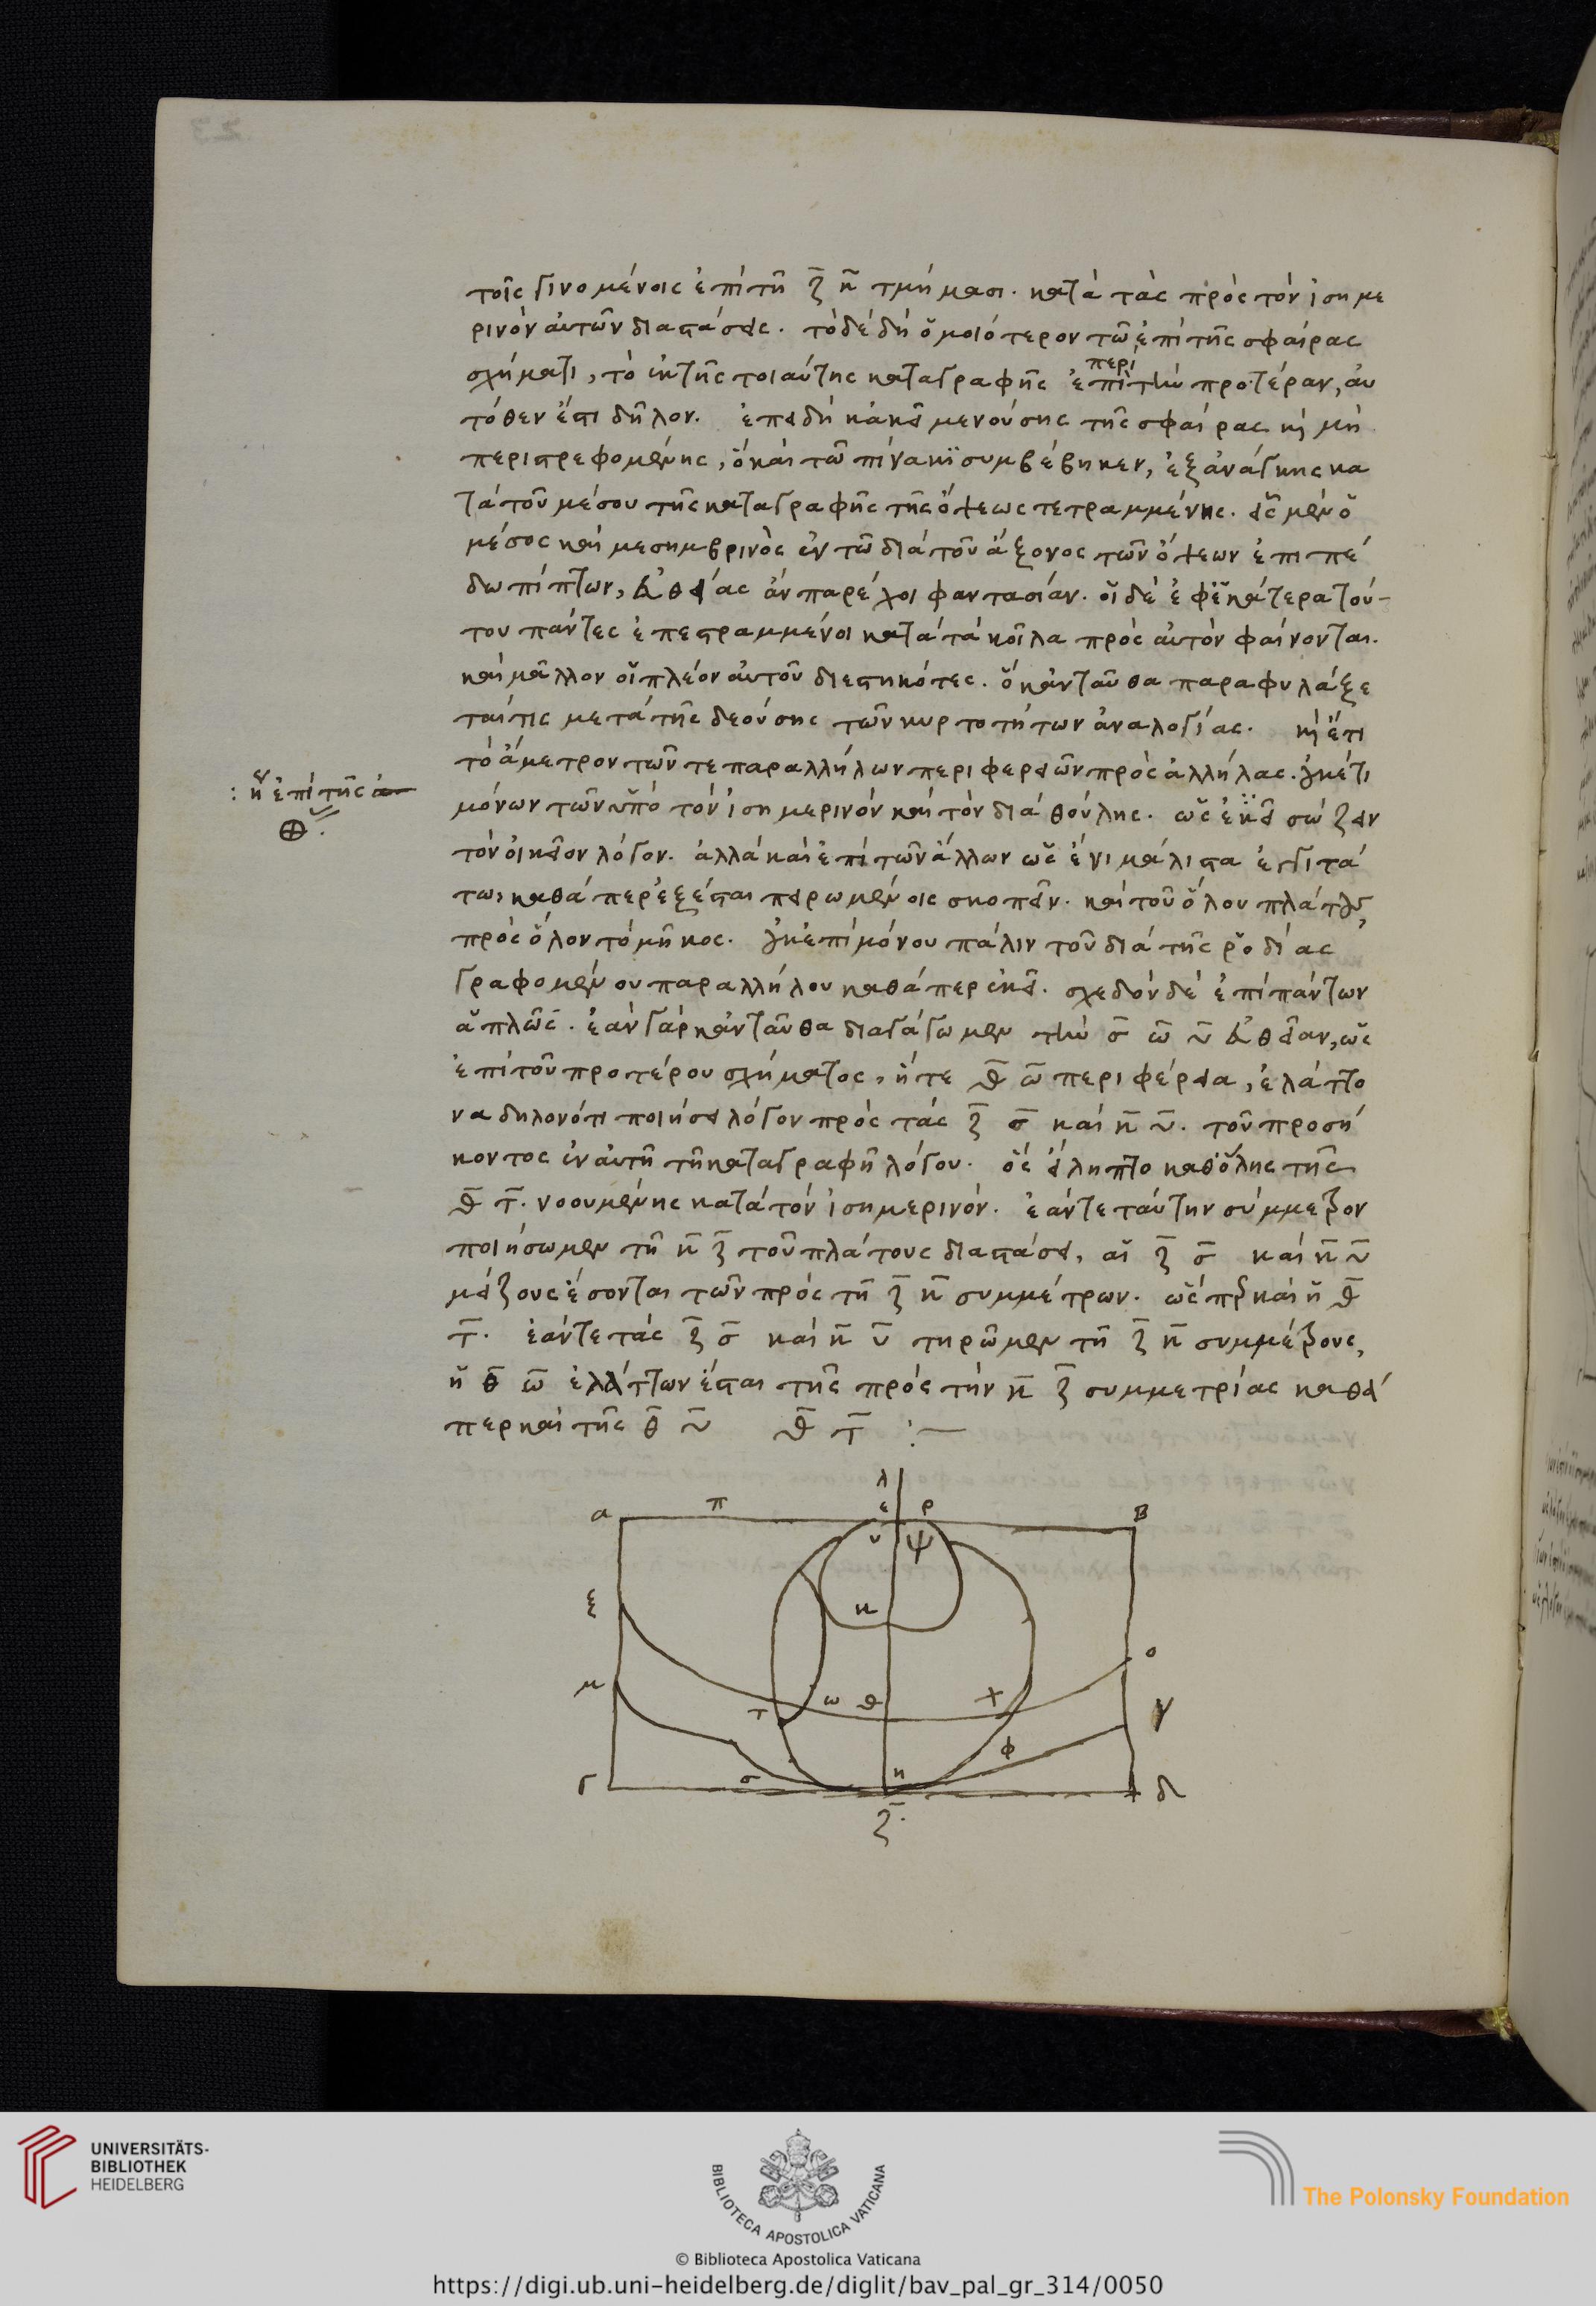 τοῖς γινομένοις ἐπὶ τῆ ζ̅ η̅ τμήμασι. κατὰ τὰς πρὸς τὸν ἰσημε
ρινὸν αὐτῶν διαστάσεις. τὸ δὲ δὴ ὁμοιότερον τῶ ἐπὶ τῆς σφαίρας
περι
σχήματι, τὸ ἐκ τῆς τοιαύτης καταγραφῆς ἐπὶ τὴν προτέραν, αὐ
τόθεν ἔστι δῆλον. ἐπειδὴ κἀκεῖ μενούσης τῆς σφαίρας καὶ μὴ
περιστρεφομένης, ὃ καὶ τῶ πίνακι συμβέβηκεν, ἐξ ἀνάγκης κα
τὰ τοῦ μέσου τῆς καταγραφῆς τῆς ὄψεως τετραμμένης. εἷς μὲν ὁ
μέσος καὶ μεσημβρινὸς ἐν τῶ διὰ τοῦ ἄξονος τῶν ὄψεων ἐπιπέ
δω πίπτων, εὐθείας ἂν παρέχοι φαντασίαν. οἱ δὲ ἐφ' ἑκάτερα τού-
του πάντες ἐπεστραμμένοι κατὰ τὰ κοῖλα πρὸς αὐτὸν φαίνονται.
καὶ μᾶλλον οἱ πλέον αὐτοῦ διεστηκότες. ὃ κἀνταῦθα παραφυλάξε
ται τις μετὰ τῆς δεούσης τῶν κυρτοτήτων ἀναλογίας. καὶ ἔτι
τὸ ἄμετρον τῶν τε παραλλήλων περιφερειῶν πρὸς ἀλλήλας. οὐκέτι
: ἢ ἐπὶ τῆς
μόνων τῶν ὑπὸ τὸν ἰσημερινὸν καὶ τὸν διὰ θούλης. ὡς ἐκεῖ σώζειν
τὸν οἰκεῖον λόγον. ἀλλὰ καὶ ἐπὶ τῶν ἄλλων ὡς ἔνι μάλιστα ἐγγιτά
τω, καθάπερ ἐξέσται πειρωμένοις σκοπεῖν. καὶ τοῦ ὅλου πλάτους
πρὸς ὅλον τὸ μῆκος. οὐκ ἐπὶ μόνου πάλιν τοῦ διὰ τῆς ῥοδίας
γραφομένου παραλλήλου καθάπερ ἐκεῖ. σχεδὸν δὲ ἐπὶ πάντων
ἁπλῶς. ἐὰν γὰρ κἀνταῦθα διαγάγωμεν τὴν σ̅ ω̅ υ̅ εὐθεῖαν, ὡς
ἐπὶ τοῦ προτέρου σχήματος, ἥ τε θ̅ ω̅ περιφέρεια, ἐλάττο
να δηλονότι ποιήσει λόγον πρὸς τὰς ζ̅ σ̅ καὶ κ̅ υ̅. τοῦ προσή
κοντος ἐν αὐτῆ τῆ καταγραφῆ λόγου. ὃς εἴληπτο καθ' ὅλης τῆς
θ̅ τ̅. νοουμένης κατὰ τὸν ἰσημερινόν. ἐάν τε ταύτην σύμμετρον
ποιήσωμεν τῆ κ̅ ζ̅ τοῦ πλάτους διαστάσει, αἱ ζ̅ σ̅ καὶ κ̅ υ̅
μείζονες ἔσονται τῶν πρὸς τῆ ζ̅ κ̅ συμμέτρων. ὥσπερ καὶ ἡ θ̅
τ̅. ἐάν τε τὰς ζ̅ σ̅ καὶ κ̅ υ̅ τηρῶμεν τῆ ζ̅ κ̅ συμμέτρους,
ἡ θ̅ ω̅ ἐλάττων ἔσται τῆς πρὸς τὴν κ̅ ζ̅ συμμετρίας καθά
περ καὶ τῆς θ̅ υ̅ θ̅ τ̅ :—
λ
α π ε ρ β
υ ψ
ξ κ
ο
μ ω θ χ
τ ν
φ
γ σ η δ
ζ
23
UNIVERSITÄTS-
BIBLIOTHEK
HEIDELBERG
BIBLIOTECA APOSTOLICA VATICANA
The Polonsky Foundation
© Biblioteca Apostolica Vaticana
https://digi.ub.uni-heidelberg.de/diglit/bav_pal_gr_314/0050